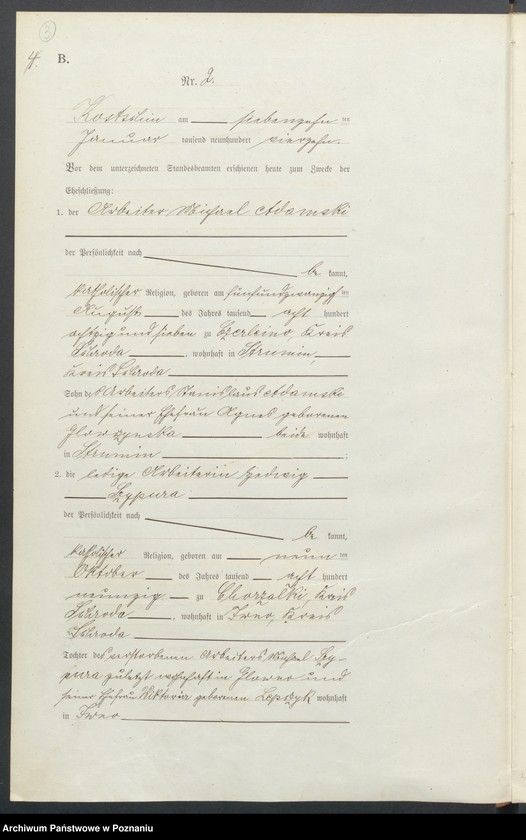 3
4.
B.
Nr. 2.
Kostschin am siebenzehn ten
Januar tausend neunhundert vierzehn.
Vor dem unterzeichneten Standesbeamten erschienen heute zum Zwecke der
Eheschließung:
1. der Arbeiter Michael Adamski
der Persönlichkeit nach
be kannt,
katholischer Religion, geboren am fünfundzwanzig ten
August des Jahres tausend acht hundert
achtzig und sieben zu Czerleino, Kreis
Schroda, wohnhaft in Strumin,
Kreis Schroda
Sohn des Arbeiters Stanislaus Adamski
und seiner Ehefrau Agnes geborenen
beide wohnhaft
in Strumin ;
2. die ledige Arbeiterin Hedwig
Szypura
der Persönlichkeit nach
be kannt,
katholischer Religion, geboren am neun ten
Oktober des Jahres tausend acht hundert
neunzig zu Chorzalki, Kreis
Schroda, wohnhaft in Iwno, Kreis
Schroda
Tochter des verstorbenen Arbeiters Michael Szy-
pura zuletzt wohnhaft in und
seiner Ehefrau Wiktoria geborenen wohnhaft
in Iwno
Archiwum Państwowe w Poznaniu